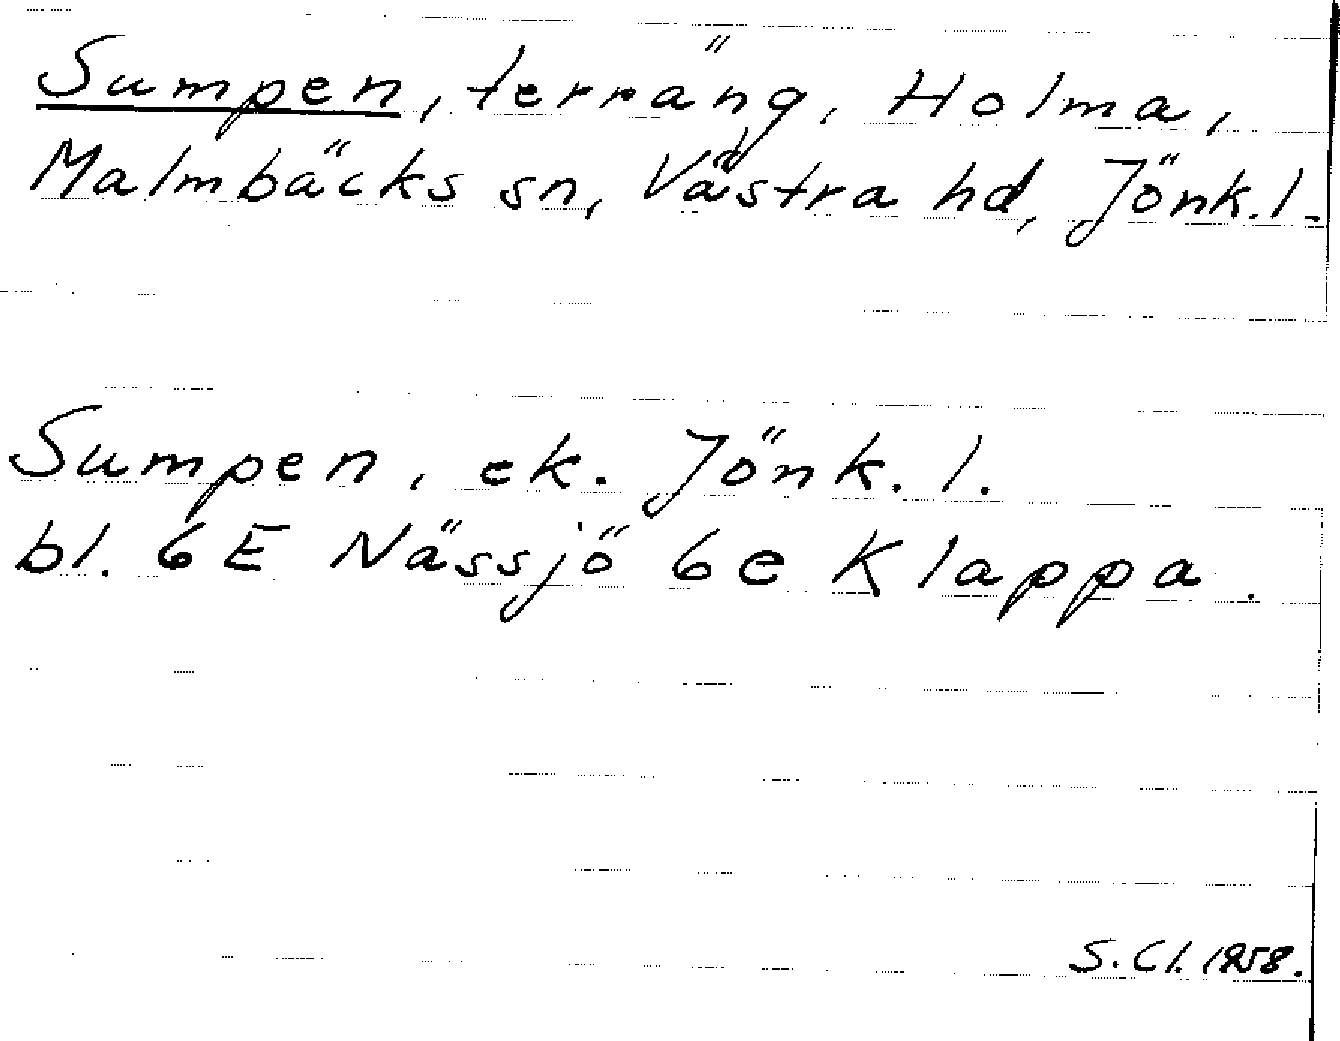 Sumpen, terräng, Holma,
Malmbäcks sn, Västra hd, Jönk.l.
Sumpen, ek. Jönk.l.
bl. 6E Nässjö 6e Klappa.
S.Cl. 1958.